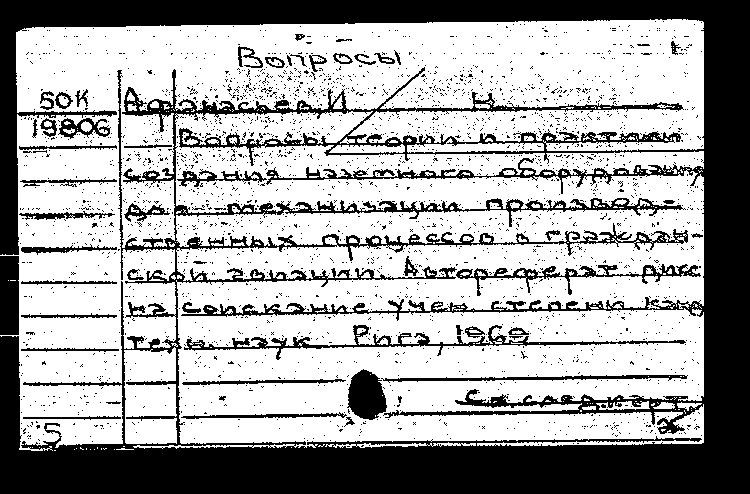 Вопросы
50К
19806
Афанасьев, И Н.
Вопросы теории и практики
создания наземного оборудования
для механизации производ-
ственных процессов в граждан-
ской авиации. Автореферат дисс
на соискание учен. степени канд
техн. наук. Рига, 1969
См. след. карт.
5